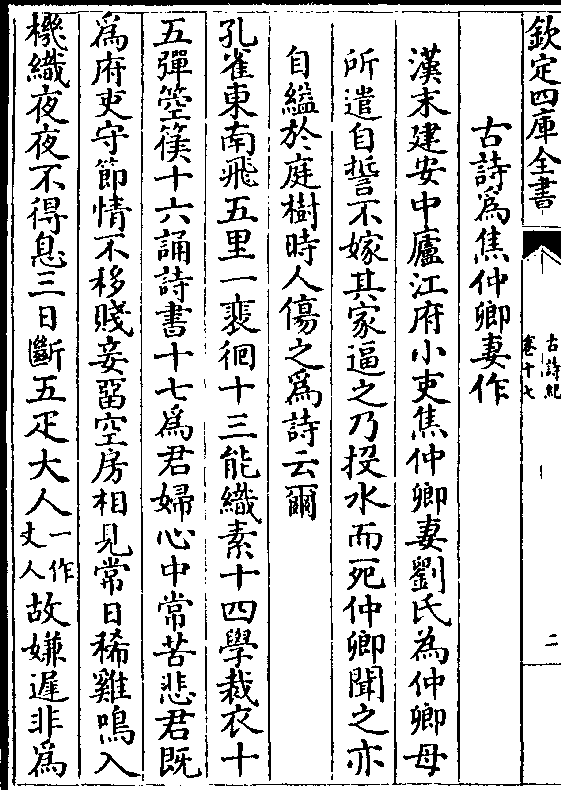 欽定四庫全書
古詩紀
卷十七
二
古詩爲焦仲卿妻作
漢末建安中廬江府小吏焦仲卿妻劉氏為仲卿母
所遣自誓不嫁其家逼之乃投水而死仲卿聞之亦
自縊於庭樹時人傷之爲詩云爾
孔雀東南飛五里一裴徊十三能織素十四學裁衣十
五彈箜篌十六誦詩書十七爲君婦心中常苦悲君既
爲府吏守節情不移賤妾留空房相見常日稀雞鳴入
機織夜夜不得息三日斷五疋大人一作丈人故嫌遲非爲